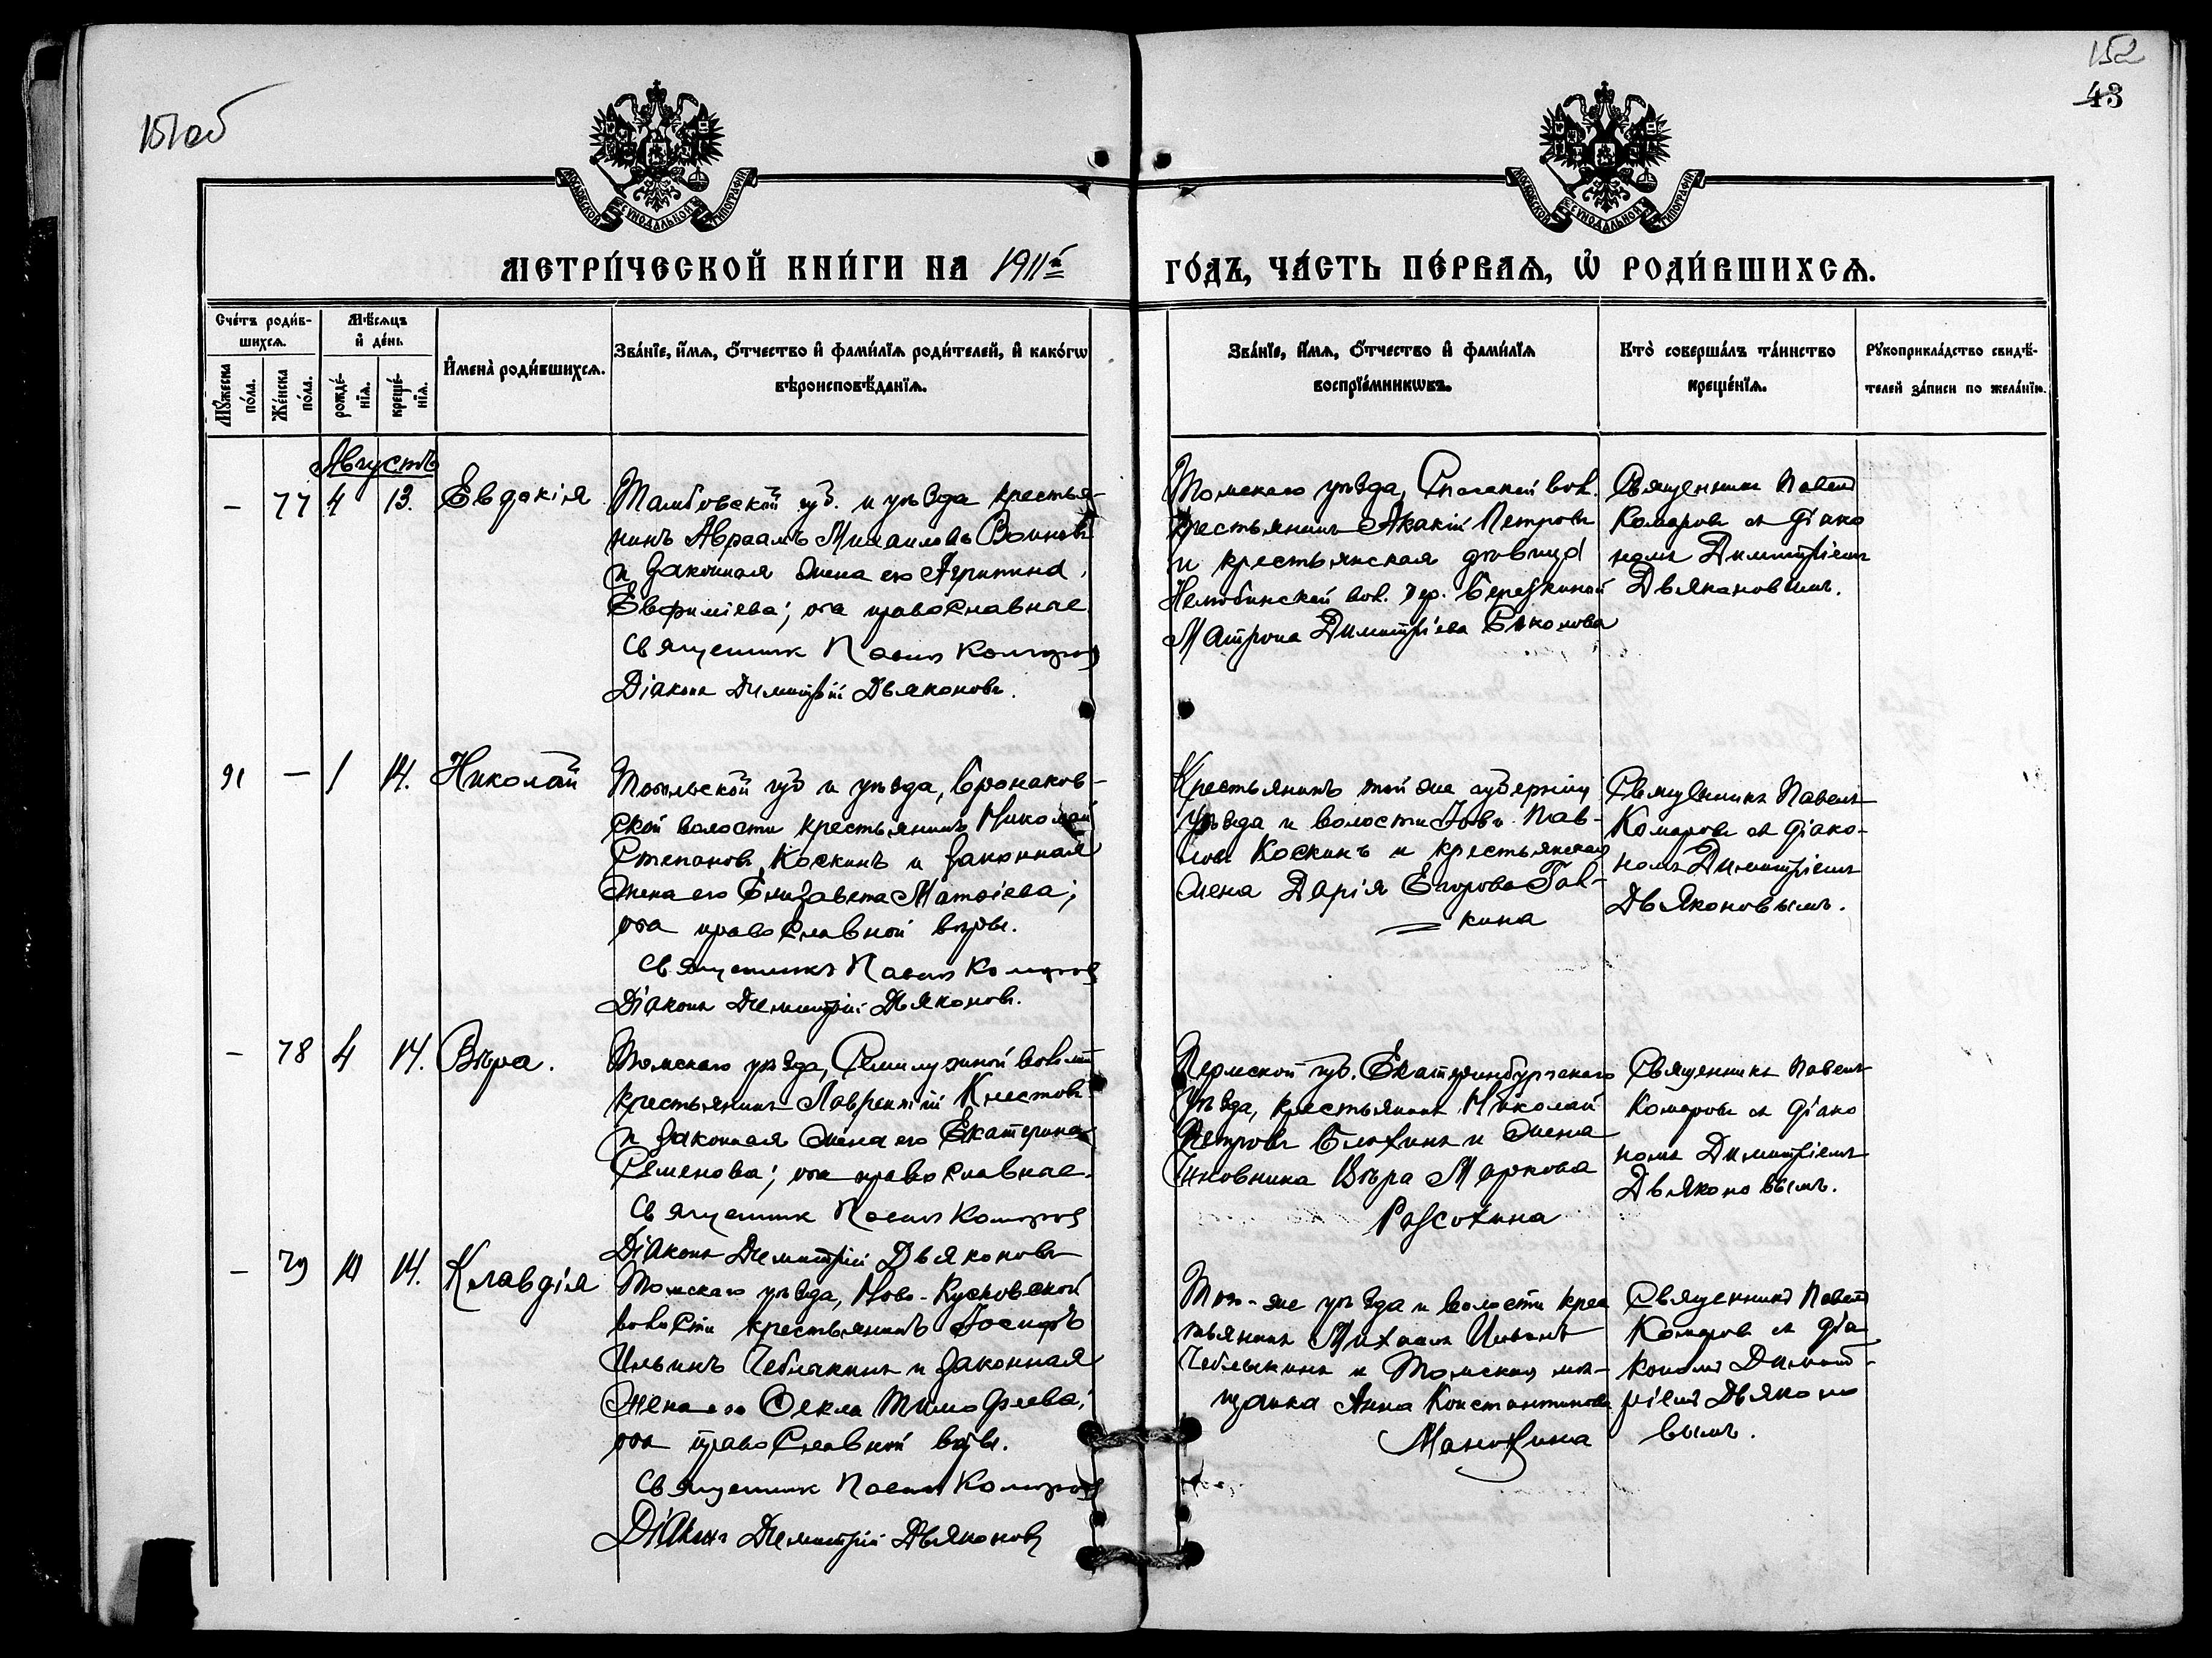 151об
152
43
МЕТРИ́ЧЕСКОЙ КНИ́ГИ НА 1911й
ГО́ДЪ, ЧА́СТЬ ПЕ́РВАѦ, Ѡ҆ РОДИ́ВШИХСѦ.
Сче́тъ роди́в-
шихсѧ.
Мꙋ́жеска по́ла.
Же́нска по́ла.
Мѣ́сѧцъ
и҆ де́нь
рожде́-
нїѧ.
креще́-
нїѧ.
И҆мена̀ роди́вшихсѧ.
Зва́нїе, и҆́мѧ, ѻ҆́тчество и҆ фами́лїѧ роди́телей, и҆ како́гѡ
вѣроисповѣ́данїѧ.
Зва́нїе, и҆́мѧ, ѻ҆́тчество и҆ фами́лїѧ
воспрїе́мникѡвъ.
Кто̀ соверша́лъ та́инство
креще́нїѧ.
Рꙋкоприкла́дство свидѣ́-
телей за́писи по жела́нїю.
Августъ
— 77 4 13. Евдокія
Тамбовской губ. и уѣзда крестья-
нинъ Авраамъ Михаиловъ Воиновъ
и законная жена его Агрипина
Евфиміева; оба православные.
Священникъ Павелъ Комаровъ
Діаконъ Димитрій Дьяконовъ.
Томскаго уѣзда, Спасской вол.
крестьянинъ Акакій Петровъ
и крестьянская дѣвица
Нелюбинской вол. дер. Березкиной
Матрона Димитріева Соколова
Священникъ Павелъ
Комаровъ съ діако
номъ Димитріемъ
Дьяконовымъ.
91 — 1 14. Николай
Тобольской губ и уѣзда, Бронников-
ской волости крестьянинъ Николай
Степановъ Коскинъ и законная
жена его Елизавета Матѳіева;
оба православной вѣры.
Священникъ Павелъ Комаровъ
Діаконъ Димитрій Дьяконовъ.
Крестьянинъ той же губерніи
уѣзда и волости Іовъ Пав-
ловъ Коскинъ и крестьянская
жена Дарія Егорова Гал-
кина
Священникъ Павелъ
Комаровъ съ діако-
номъ Димитріемъ
Дьяконовымъ.
— 78 4 14. Вѣра.
Томскаго уѣзда, Семилужной волости
крестьянинъ Лаврентій
и законная жена его Екатерина
Семенова; оба православные.
Священникъ Павелъ Комаровъ
Діаконъ Димитрій Дьяконовъ
Пермской губ. Екатеринбургскаго
уѣзда, крестьянинъ Николай
Петровъ Блохинъ и жена
чиновника Вѣра Маркова
Разсохина
Священникъ Павелъ
Комаровъ съ діако
номъ Димитріемъ
Дьяконовымъ.
— 79 10 14. Клавдія
Томскаго уѣзда, Ново-Кусковской
волости крестьянинъ Іосифъ
Ильинъ Чеблыкинъ и законная
жена его Ѳекла Тимофеева;
оба православной вѣры.
Священникъ Павелъ Комаровъ
Діаконъ Димитрій Дьяконовъ
Того-же уѣзда и волости крес
тьянинъ Михаилъ Ильинъ
Чеблыкинъ и Томская мѣ-
щанка Анна Константинова
Манохина
Священникъ Павелъ
Комаровъ съ діа
кономъ Димит-
ріемъ Дьяконо
вымъ.